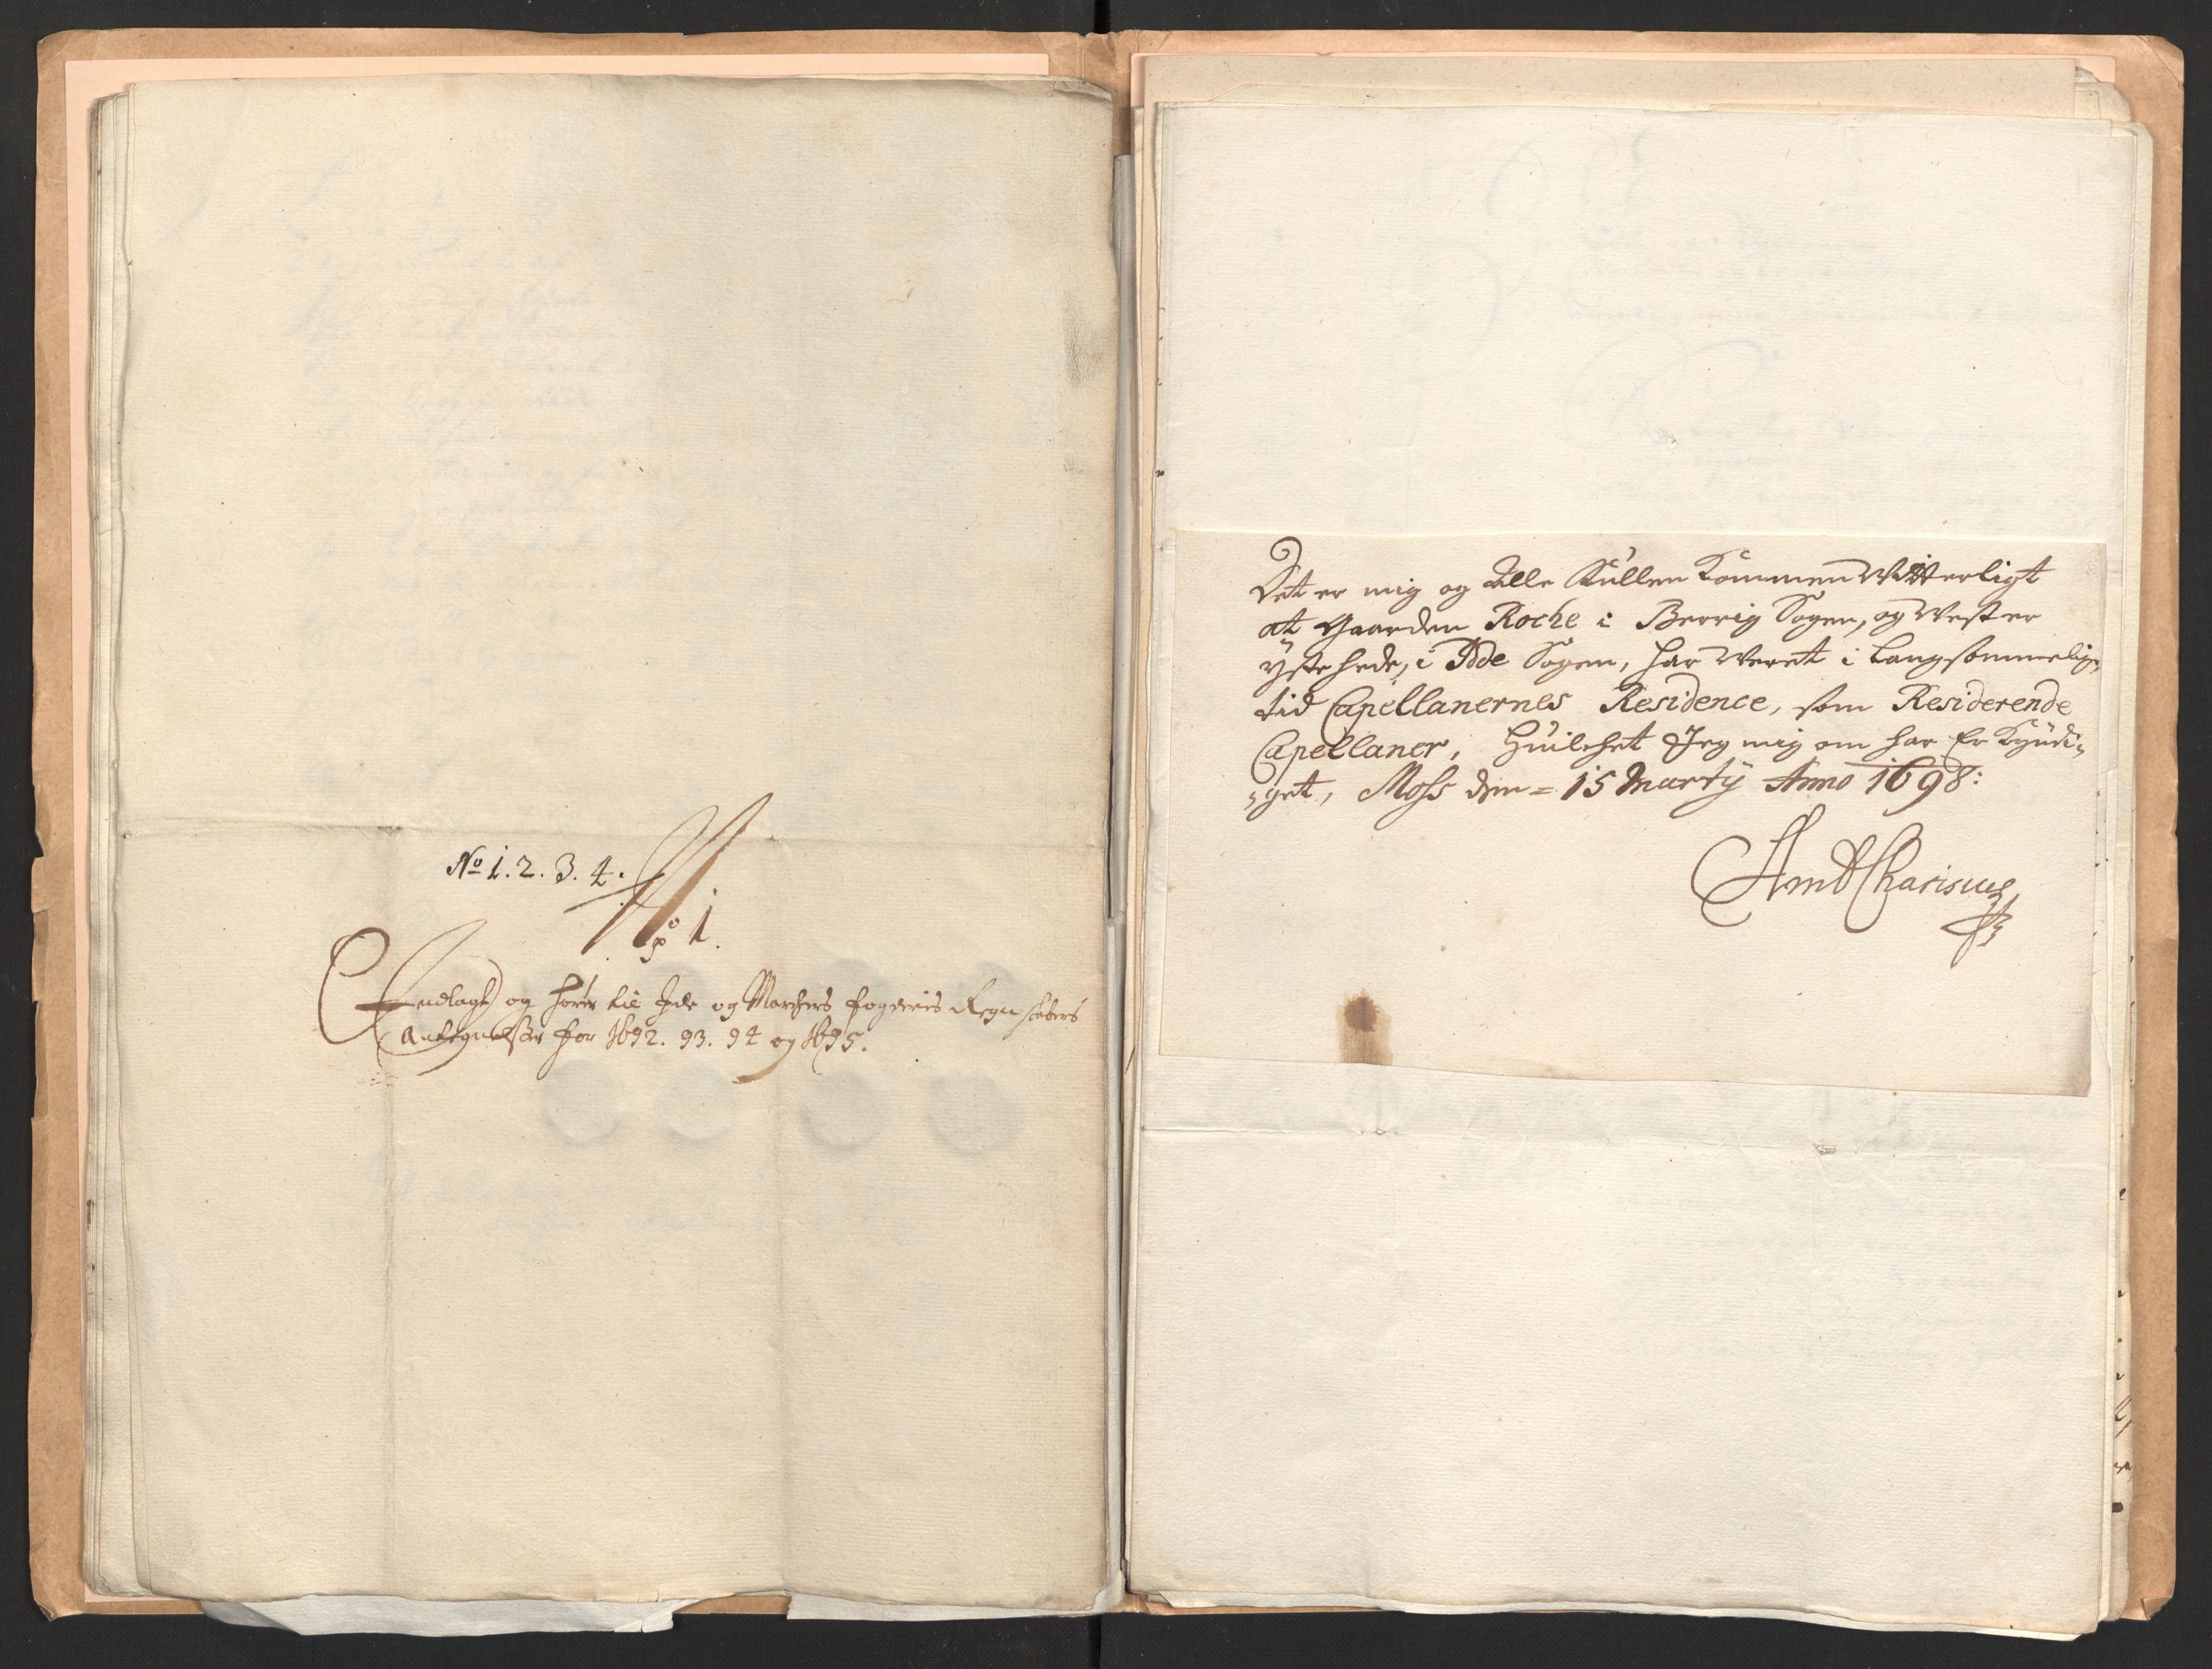 No 1. 2. 3. 4.
No 1.
Indlagt og hører til Ide og Marchers fogderies Regenschabers
Antegnelser for 1692. 93. 94 og 1695.
Det er mig og Alle fullenkommen Witterligt
at Gaarden Roche i Berrig Sogen, og Wester
Ystehede, i Idde Sogen, har Weret i Langsommelig
tid Capellanernes Residence, som Residerende
Capellaner, Huilchet Jeg mig om har Er Kyndi-
-get, Moss den = 15 Marty Anno 1698:
Charisius